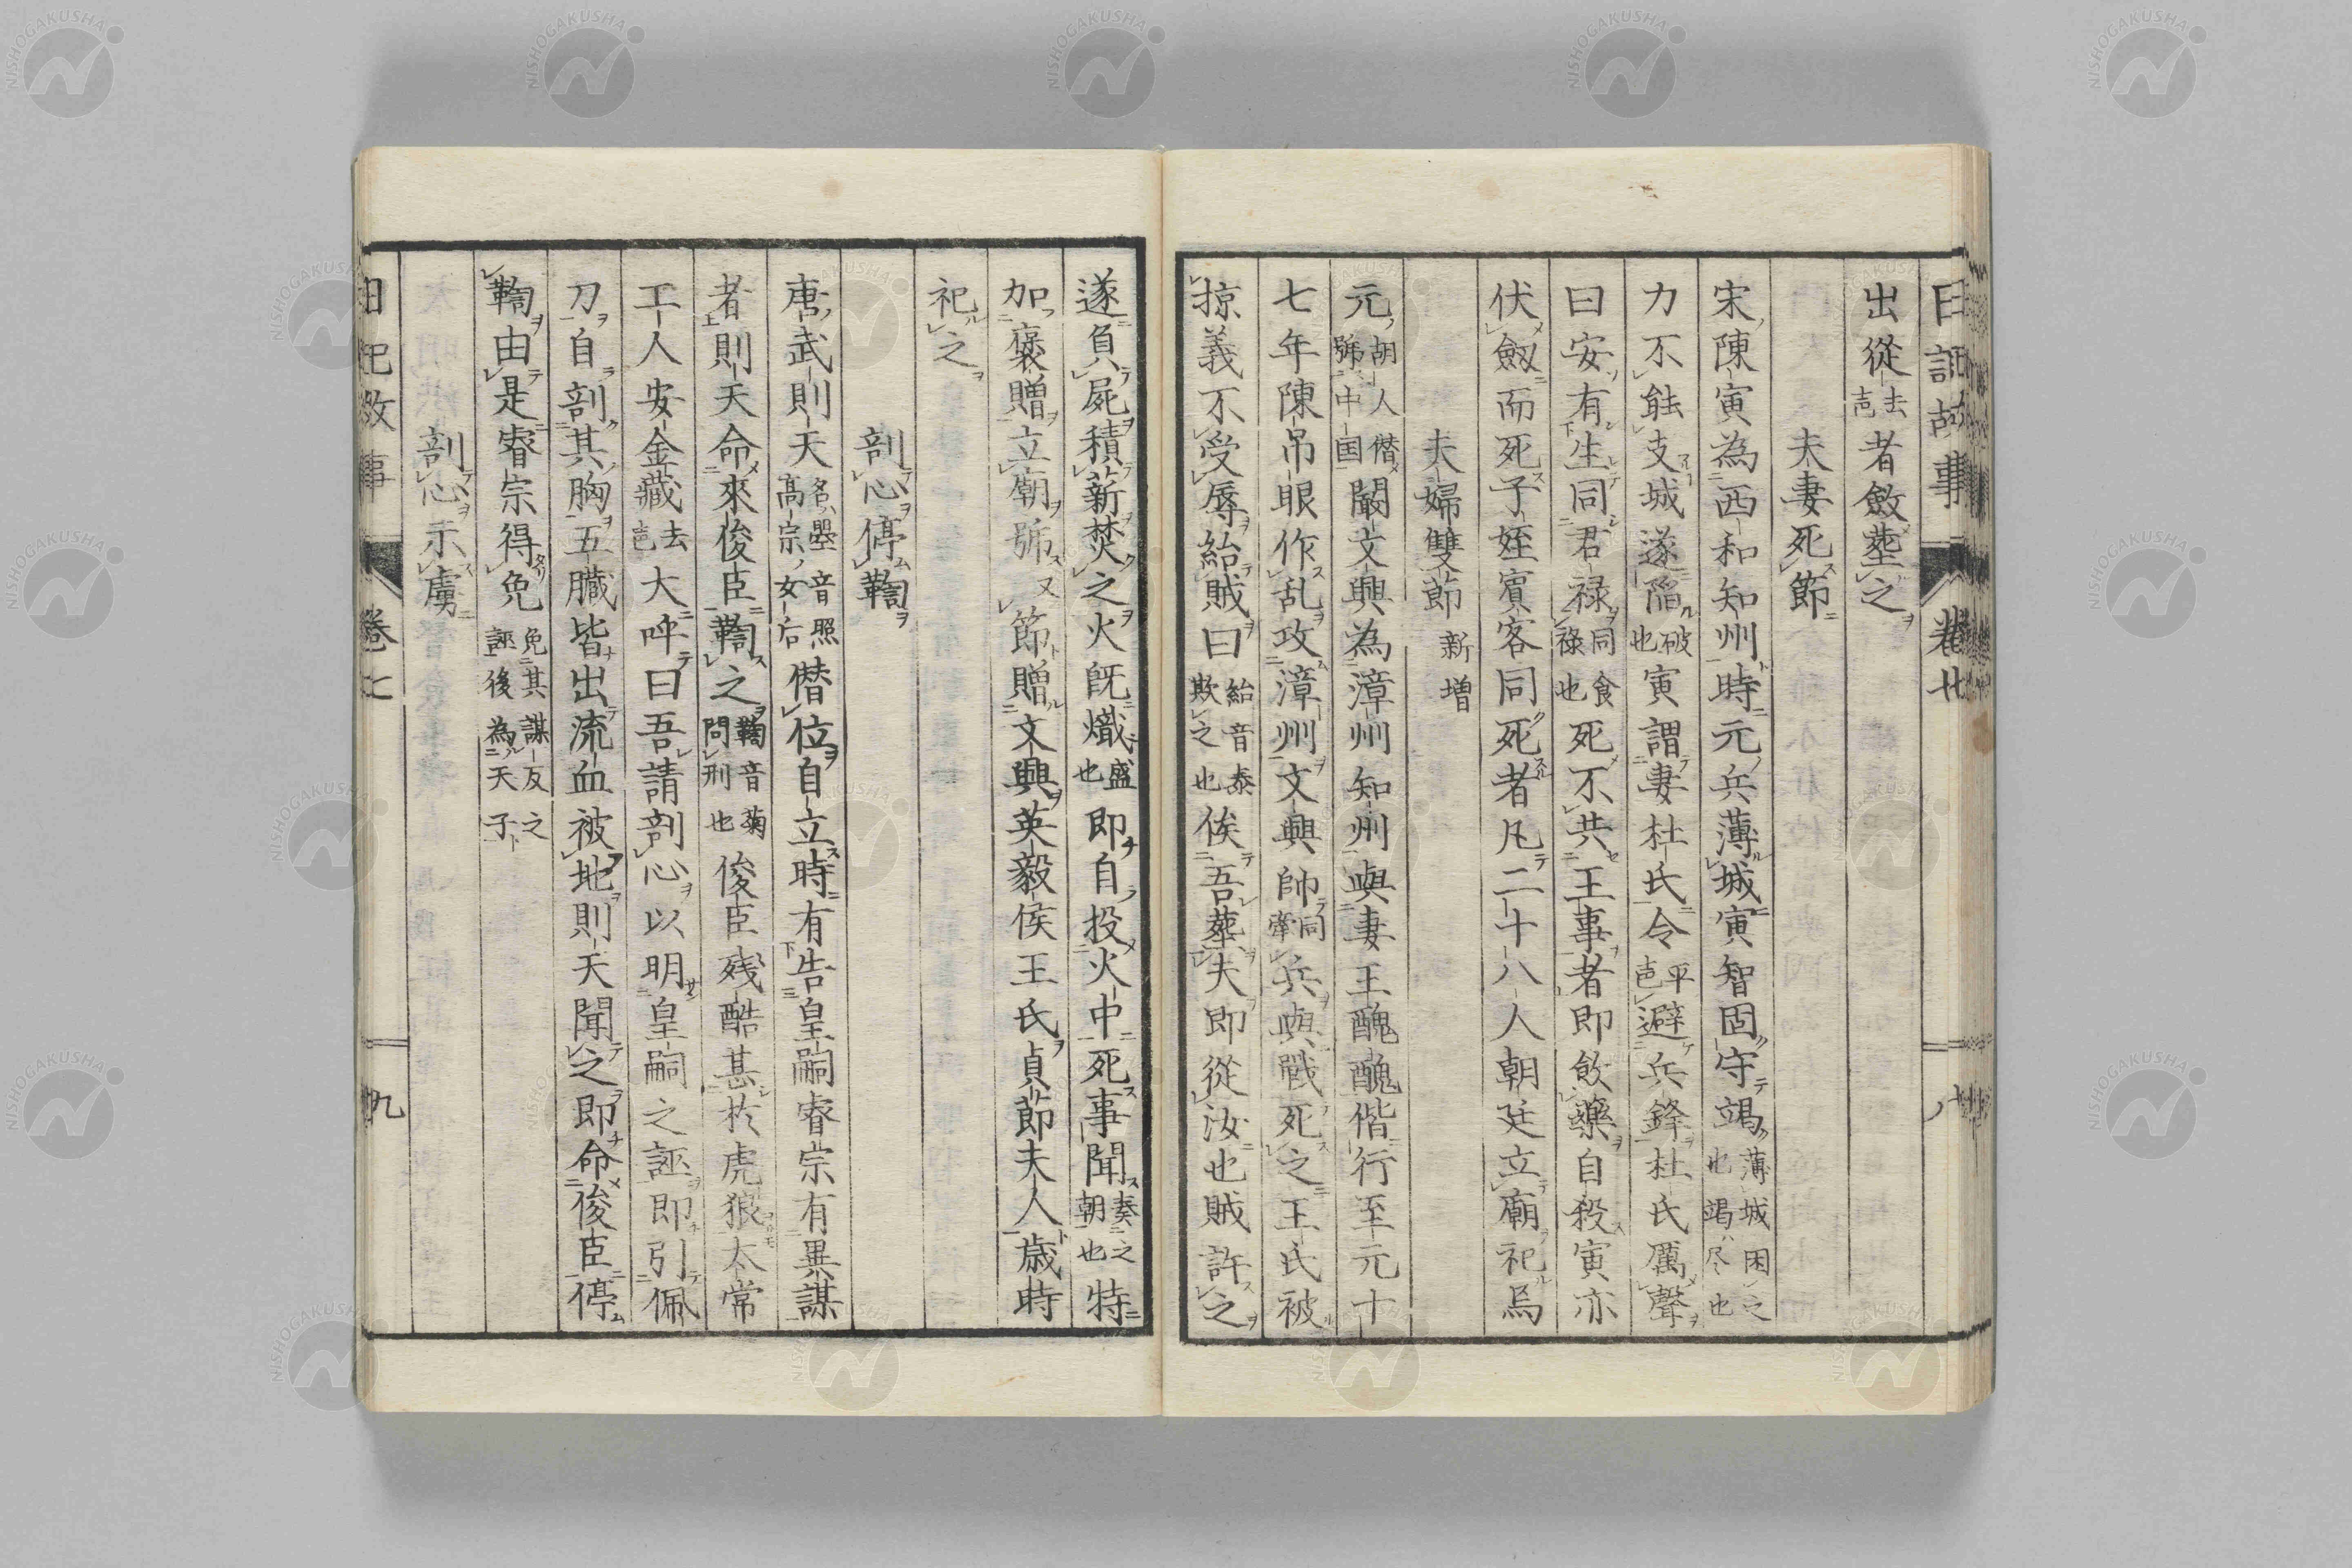 日記故事 卷七 八
出從去声者斂塟之
夫妻死節
宋陳寅為西和知州時元兵薄城寅智固守竭薄城困之也竭尽也
力不能支城遂陥破也寅謂妻杜氏令平声避兵鋒杜氏厲聲
曰安有生同君禄同食祿也死不共王事者即飲藥自殺寅亦
伏劔而死子姪賓客同死死者凡二十八人朝廷立廟祀焉
夫婦雙節新増
元胡人僣號中国闞文興為漳州知州與妻王醜醜偕行至元十
七年陳吊眼作乱攻漳州文興帥同率兵與戰死之王氏被
掠義不受辱紿賊曰紿音泰欺之也俟吾塟夫即從汝也賊許之
遂負屍積薪焚之火既熾盛也即自投火中死事聞奏之朝也特
加褒贈立廟號又節贈文興英毅侯王氏貞節夫人歳時
祀之
剖心停鞫
唐武則天名曌音照高宗女后僣位自立時有告皇嗣睿宗有異謀
者則天命來俊臣鞫之鞫音菊問刑也俊臣残酷甚於虎狼太常
工人安金藏去声大呼曰吾請剖心以明皇嗣之誣即引佩
刀自剖其胸五臓皆出流血被地則天聞之即命俊臣停
鞫由是睿宗得免免其謀反之誣後為天子
剖心示虜
日記故事 卷七 九
NISHOGAKUSHA